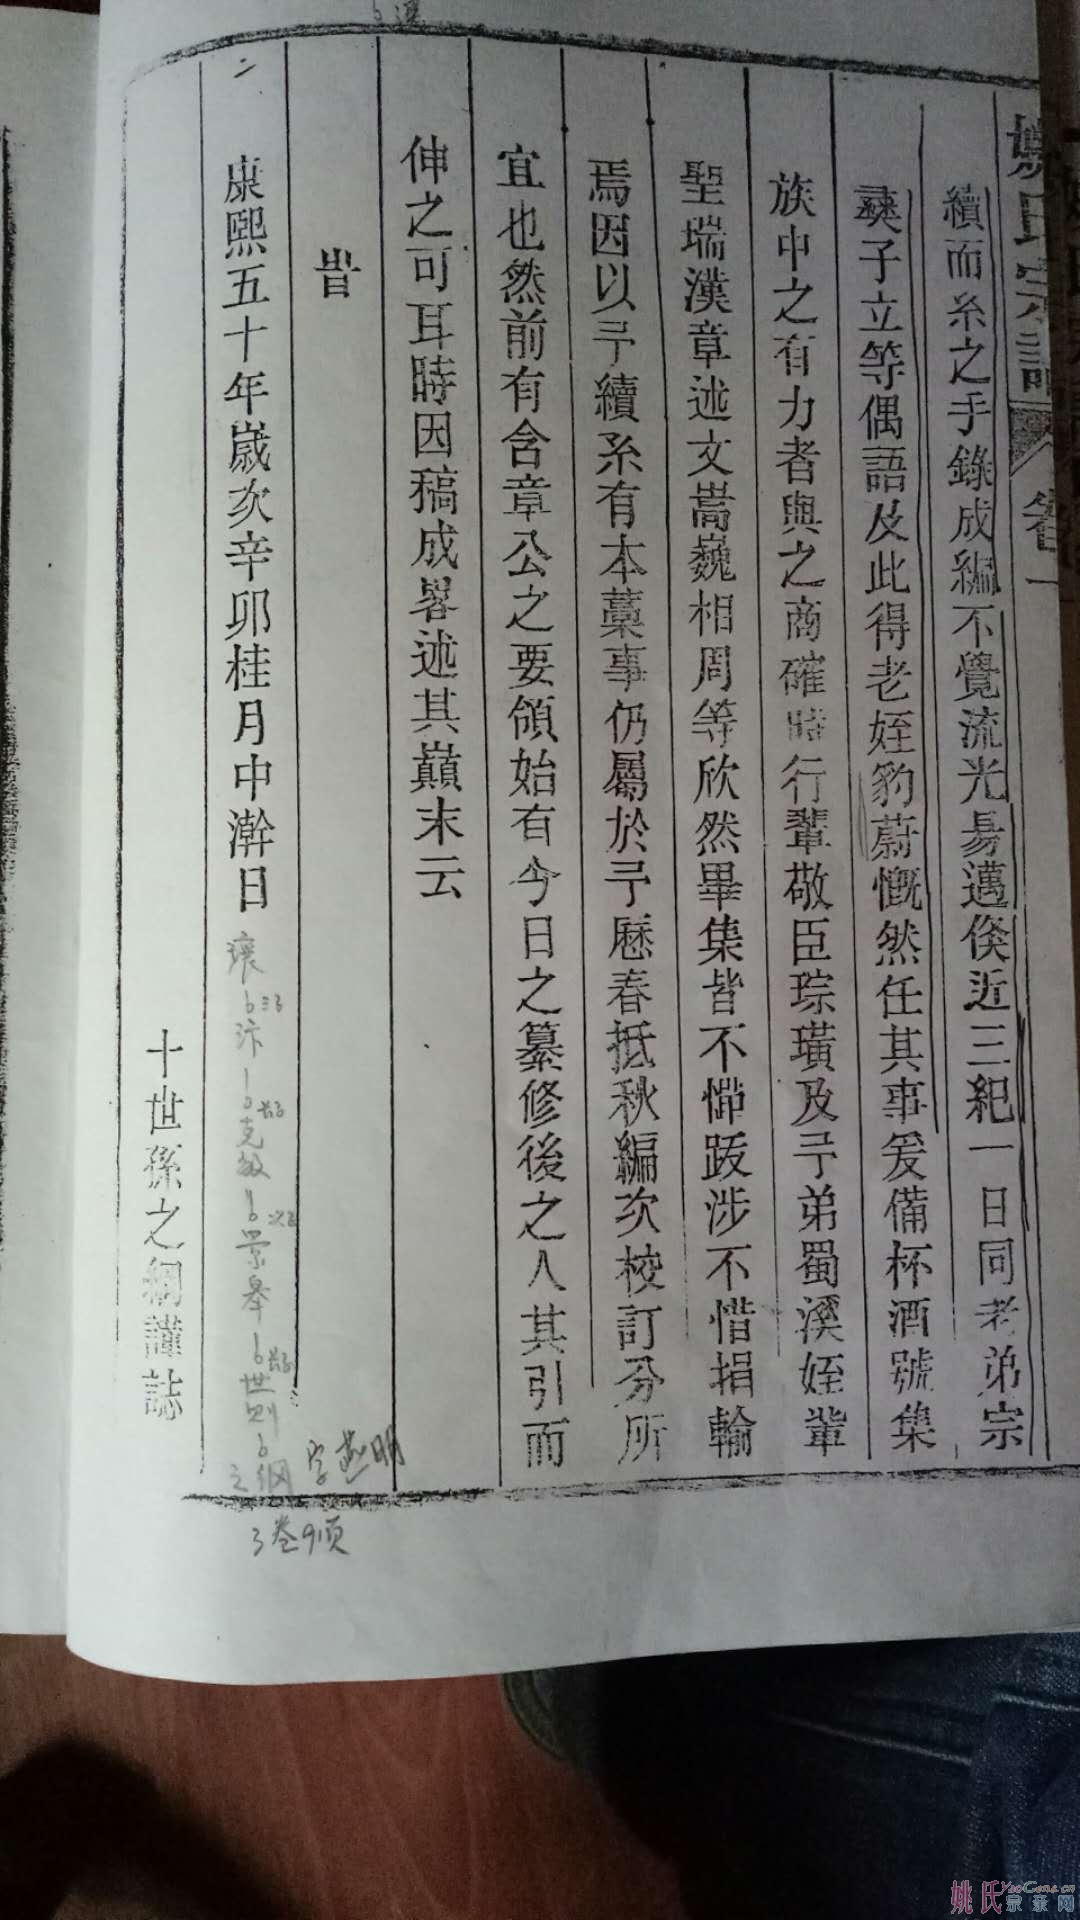 姚氏宗譜 卷首一
續而糸之手錄成編不覺流光昜邁倐近三紀一日同老弟宗
彛子立等偶語及此得老姪豹蔚慨然任其事爰備杯酒號集
族中之有力者與之商確時行輩敬臣琮璜及予弟蜀溪姪輩
聖瑞漢章述文嵩巍相周等欣然畢集皆不憚跋涉不惜捐輸
焉因以予續糸有本藁事仍屬於予歷春抵秋編次校訂分所
宜也然前有含章公之要領始有今日之纂修後之人其引而
伸之可耳時因稿成畧述其巔末云
旹
康熙五十年歲次辛卯桂月中澣日
十世孫之綱謹誌
三子
汴
长子
克敏
次子
景舉
长子
世则
之纲
字燕明
3卷9页
姚氏宗亲网
YaoGens.cn